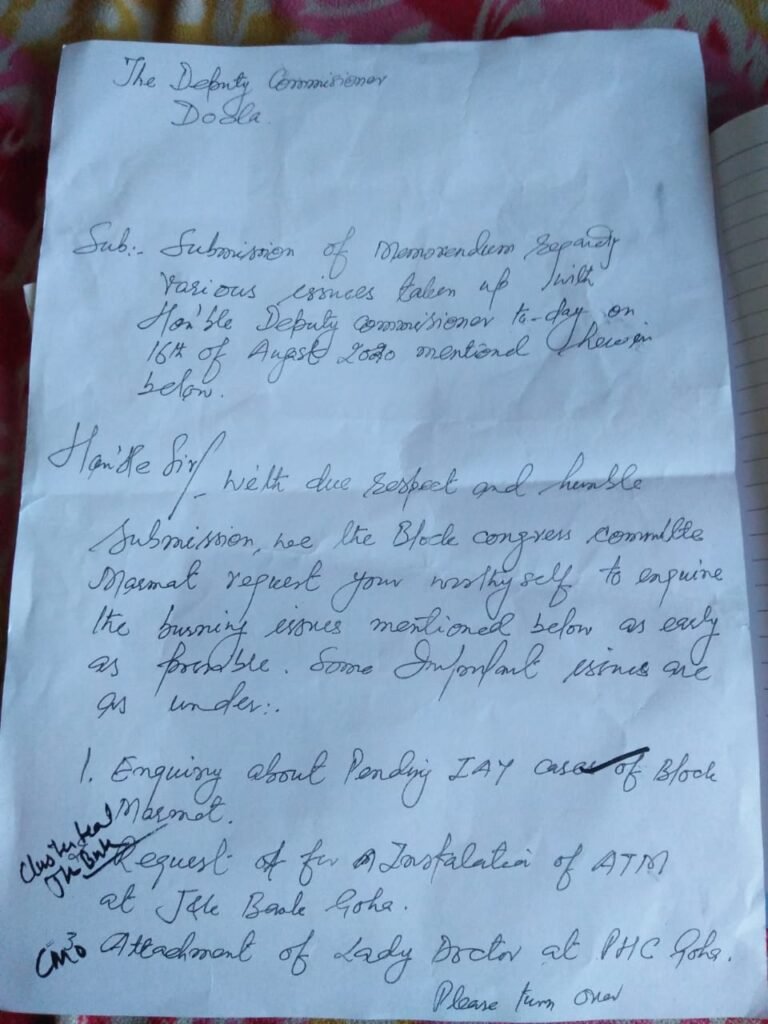 The Deputy Commisioner
Doda.
Sub:- Submission of Memorendum regardg
various issues taken up with
Hon'ble Deputy commisioner to-day on
16th of Augast 2020 mentioned herein
below.
Hon'ble Sir/
- With due respect and humble
submission, we the Block congress committe
Marmat request your worthyself to enquire
the burning issues mentioned below as early
as possible. Some Important issues are
as under:.
1. Enquiry about Pending IAY cases of Block
Marmat.
Cluster head
JK Bank
Request of for Instalation of ATM
at J&K Bank Goha.
CMO
3 Attachment of Lady Doctor at PHC Goha.
Please turn over